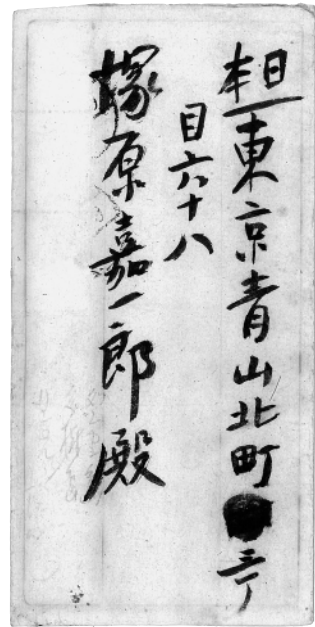 日本
東京青山北町三丁
目六十八
塚原嘉一郎殿